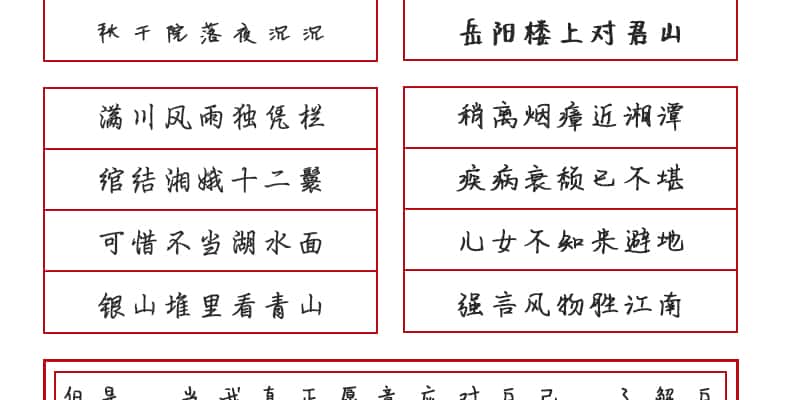 秋千院落夜沉沉
岳阳楼上对君山
满川风雨独凭栏
绾结湘娥十二鬟
可惜不当湖水面
银山堆里看青山
稍离烟瘴近湘潭
疾病衰颓已不堪
儿女不知来避地
强言风物胜江南
但是 当我真正愿意应对自己 了解自